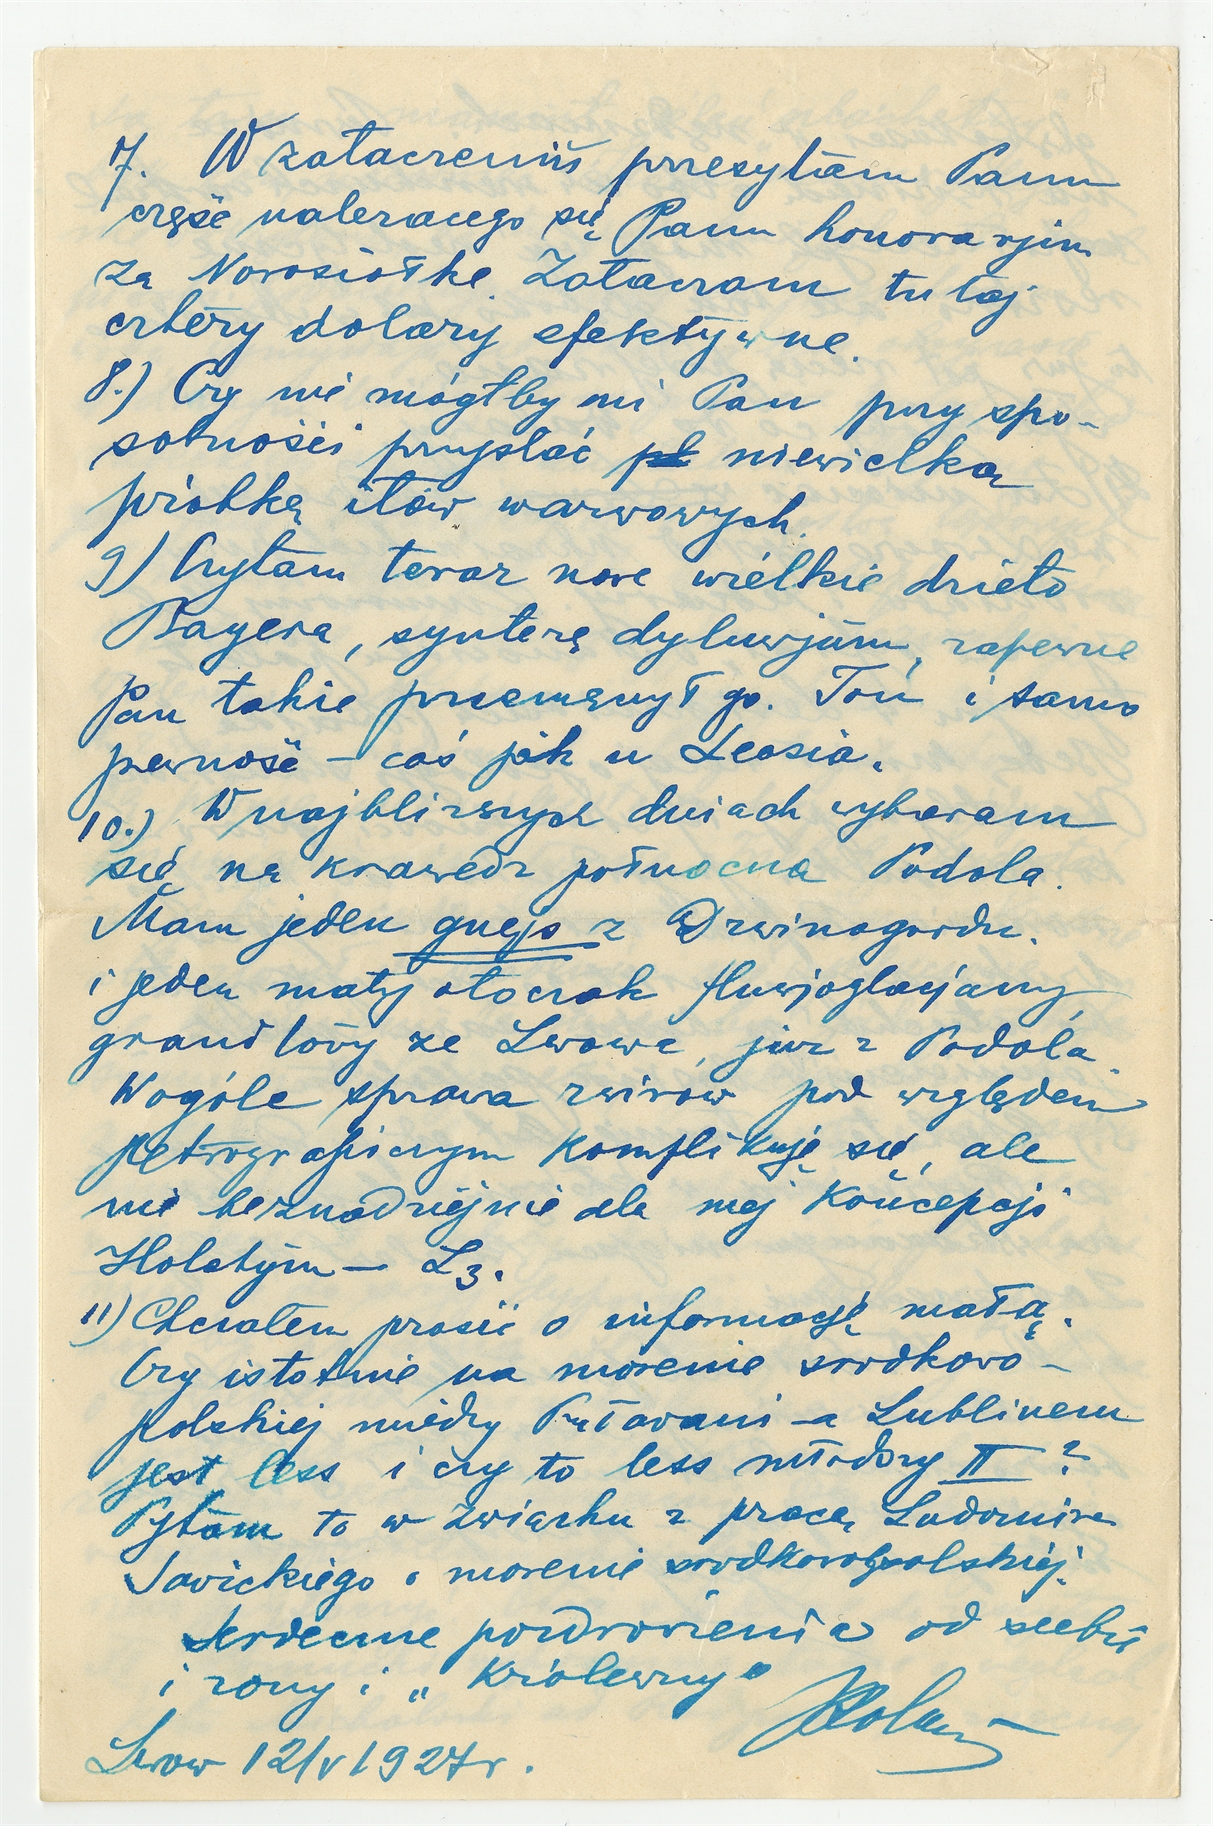 7. W załączeniu przesyłam Panu
część należącego się Panu honorarjum
za Nowosiółkę. Załączam tutaj
cztery dolary efektywne.
8.) Czy nie mógłby mi Pan przy spo-
sobności przysłać niewielką
próbkę iłów warwowych.
9) Czytam teraz nowe wielkie dzieło
Bayera, syntezę dyluwjum, zapewne
Pan także przemęczył go. Ton i sama
pewność – coś jak u Leosia.
10.) W najbliższych dniach wybieram
się na krawędź północną Podola.
Mam jeden gnejs z Dzwinogrodu.
i jeden mały otoczak fluwjoglacjalny
granitowy ze Lwowa, już z Podola
Wogóle sprawa żwirów pod względem
petrograficznym komplikuje się, ale
nie beznadziejnie dla mej koncepcji
Holstýn – L3.
11) Chciałem prosić o informację małą.
Czy istotnie na morenie środkowo-
polskiej między Puławami a Lublinem
jest less i czy to less młodszy II ?
Pytam to w związku z pracą Ludomira
Sawickiego o morenie środkowopolskiej.
Serdeczne pozdrowienia od siebie
i żony i „Królewny"
Lwow 12/V 1927 r.